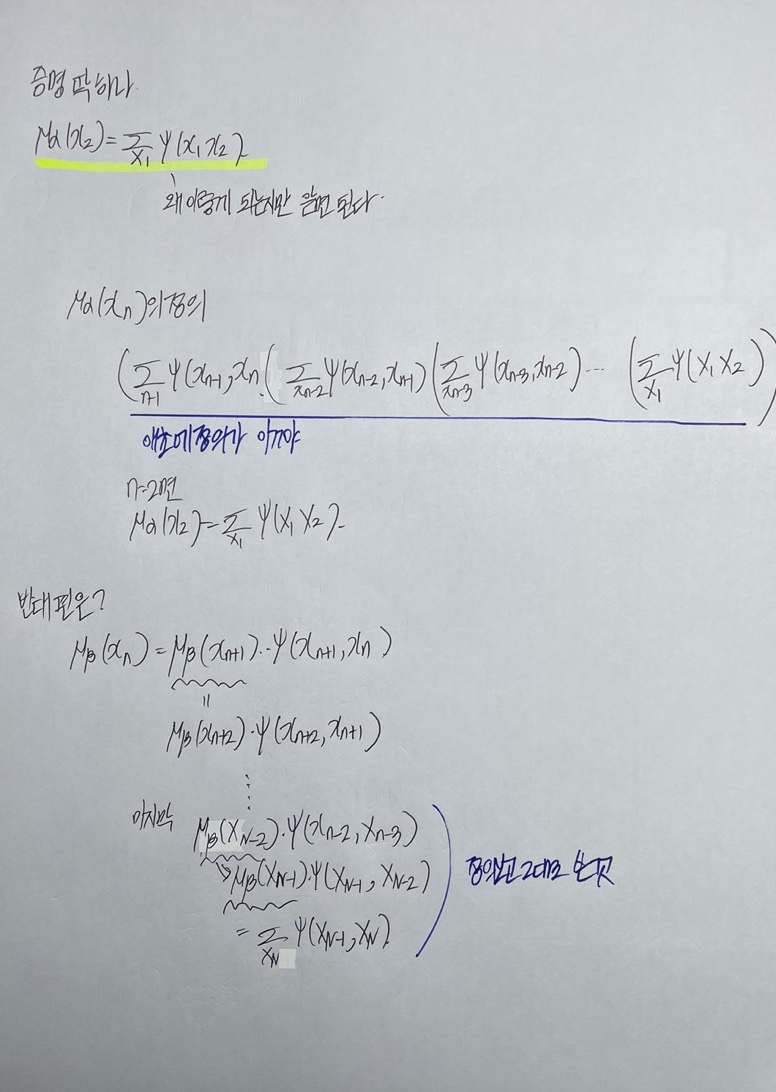 증명 딱 하나.
μα(x₂)=Σ_x₁ ψ(x₁x₂).
왜 이렇게 되는지만 알면 된다.
μα(xn)의 정의
(Σ_n-1 ψ(xn-1,xn.(Σ_xn-2 ψ(xn-2,xn-1)(Σ_xn-3 ψ(xn-3,xn-2)... (Σ_x₁ ψ(x₁x₂))
애초에 정의가 이거야
n=2면
μα(x₂)=Σ_x₁ ψ(x₁x₂).
반대편은?
μβ(xn)=μβ(xn+1)..ψ(xn+1,xn)
=
μβ(xn+2).ψ(xn+2,xn+1)
마지막 μβ(xN-2).ψ(xn-2,xn-3)
μβ(xN-1).ψ(xN-1,xN-2)
=Σ_xN ψ(xN-1,xN).
정의보고 그대로 쓴 것